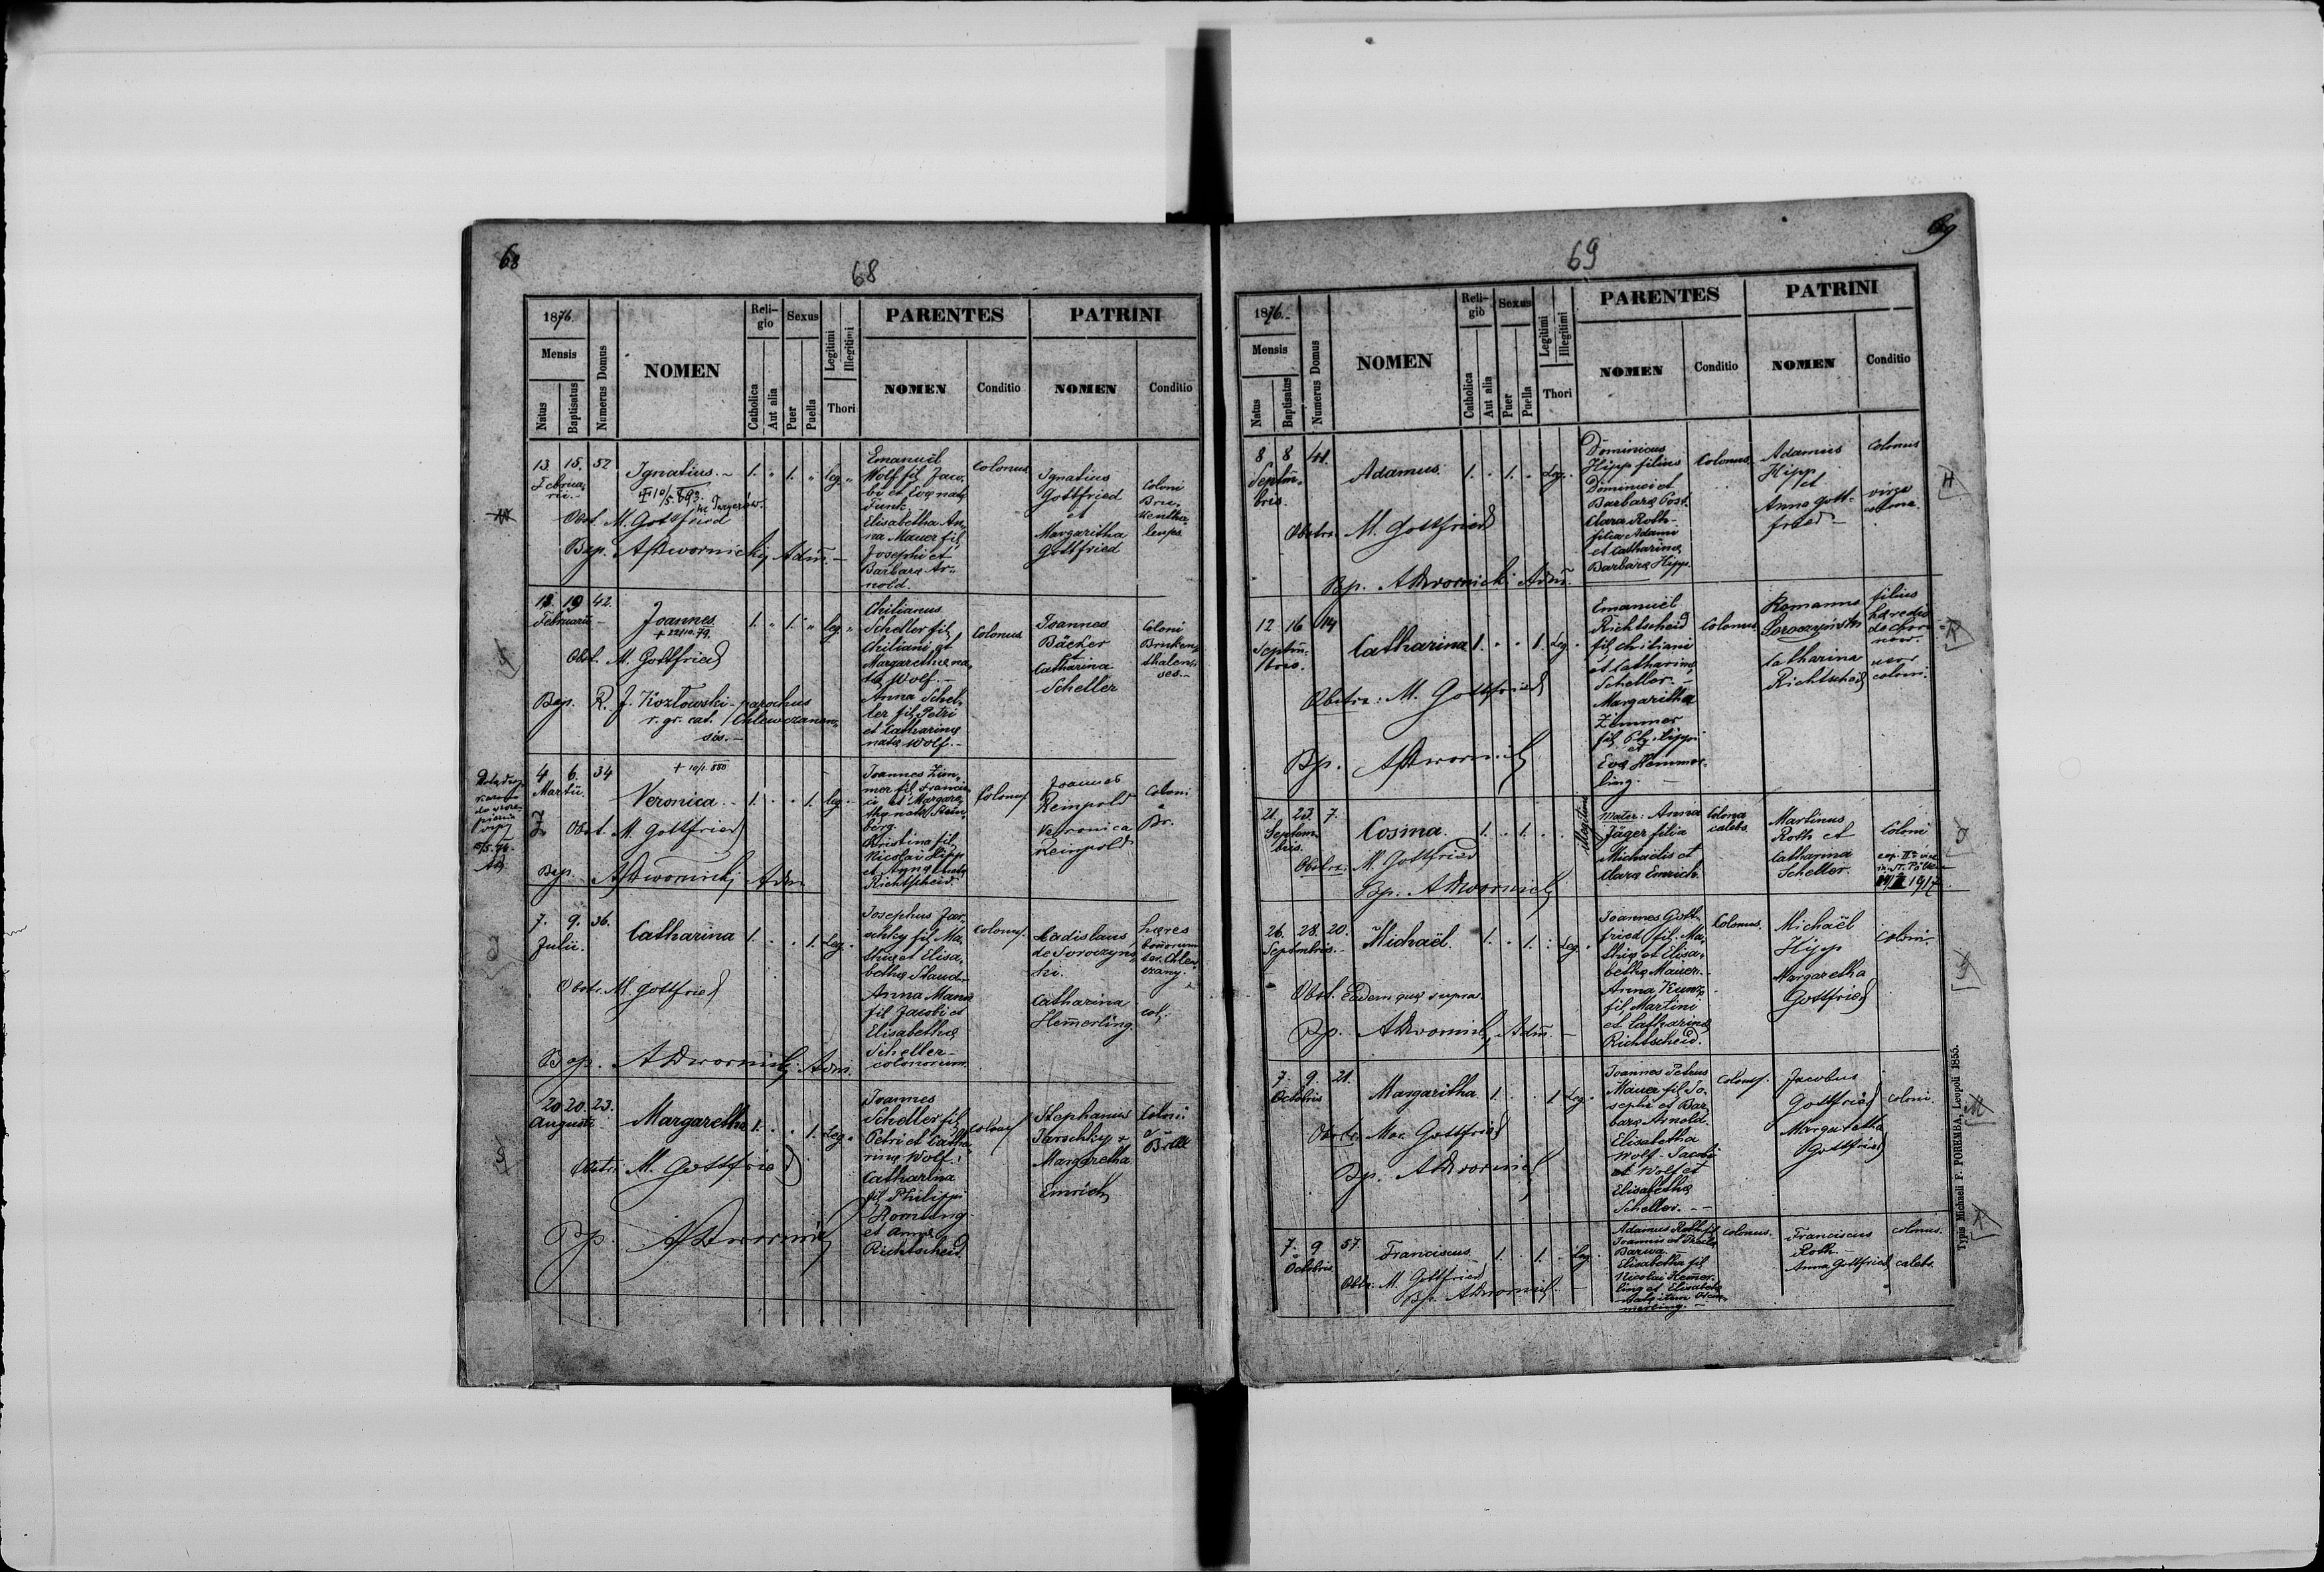 68
68
1876.
Mensis
Natus
Baptisatus
Numerus Domus
NOMEN
Reli-
gio
Catholica
Aut alia
Sexus
Puer
Puella
Legitimi
Illegitimi
Thori
PARENTES
NOMEN
Conditio
PATRINI
NOMEN
Conditio
13. 15. 52 Ignatius. 1. " 1. " leg. "
Februa-
rii.
Obst. M. Gottfried
Bap. ADwornicky Adm. -
Emanuël
Wolf fil. Jaco-
bi et Evæ natæ
Funk.
Elisabetha An-
na Mauer fil.
Josephi et
Barbaræ Ar-
nold.
Colonus
Ignatius
Gottfried
et
Margaritha
Gottfried
Coloni
Bru-
kentha-
lenses
18. 19 42. Joannes 1. " 1. " leg. "
Februarii
+ 22/10.79.
Obst. M. Gottfried
Bap. R. J. Kozłowski - parochus
r. gr. cat. Chlewczanen-
sis. -
Chilianus
Scheller fil.
Chiliani et
Margarethæ na-
tæ Wolf. -
Anna Schel-
ler fil. Petri
et Catharinæ
natæ Wolf. -
Colonus
Joannes
Bäcker
et
Catharina
Scheller
Coloni
Bruken-
thalen-
ses. -
4 6. 34 + 10/1. 880
Martii. Veronica. 1. . . 1. leg.
Obst. M. Gottfried
Bap. ADwornicki Adm
Joannes Zim-
mer fil. Francis-
ci et Margare-
thæ natæ Stein-
berg.
Kristina fil.
Nicolai Hipp
et Annæ natæ
Richtscheid.
Colonus
Joannes
Reinpold
Veronica
Reinpold
Coloni
Br.
7. 9. 36. Catharina 1. . . 1. Leg.
Julii.
Obst. M. Gottfried
Bap. ADwornicki Adm.
Josephus Jar-
schky fil. Ma-
thiæ et Elisa-
bethæ Staud-
Anna Mana
fil. Jacobi et
Elisabethæ
Scheller
colonorum.
Colonus.
Ladislaus
de Soroczyns-
ki.
Catharina
Hemerling.
hæres
bonorum
Chlew-
czany.
col.
20 20. 23. Margaretha 1. . . 1. Leg.
Augusti
Obstr. M. Gottfried
Bp. ADwornicki
Joannes
Scheller fil.
Petri et Catha-
rinæ Wolf.
Catharina
fil. Philippi
Hornung
et Annæ
Richtscheid.
Colonus
Stephanus
Jarschky +
Margaretha
Emrich
Coloni
69
69
1876.
Mensis
Natus
Baptisatus
Numerus Domus
NOMEN
Reli-
gio
Catholica
Aut alia
Sexus
Puer
Puella
Legitimi
Illegitimi
Thori
PARENTES
NOMEN
Conditio
PATRINI
NOMEN
Conditio
8 8 41. Adamus. 1. . 1. . Leg.
Septem-
bris.
Obstr. M. Gottfried
Bp. ADwornicki Adm.
Dominicus
Hipp filius
Dominici et
Barbaræ Post.
Clara Roth-
filia Adami
et Catharinæ
Barbaræ Hipp.
Colonus
Adamus
Hipp
et
Anna Gott-
fried
Colonus
virgo
12 16 14 Catharina 1. . . 1. Leg.
Septem-
bris.
Obstr: M. Gottfried
Bp. ADwornicki
Emanuël
Richtscheid
fil. Chiliani
et Catharinæ
Scheller. -
Margaritha
Zimmer
fil. Philippi
et
Evæ Hemmer-
ling.
Colonus.
Romanus
Soroczyński
Catharina
Richtscheid
filius
hæredis
uxor
coloni.
21. 23. 7. Cosma. 1. . 1. . illegitimi
Septem-
bris.
Obstr. M. Gottfried
Bp. ADwornicki
Mater: Anna
Jäger filia
Michaëlis et
Claræ Emrich.
Colona
Martinus
Roth et
Catharina
Scheller.
Coloni
1917.
26. 28. 20. Michaël. 1. . 1. . Leg.
Septembris.
Obst. Eadem quæ supra.
Bp. ADwornicki Adm. -
Joannes Gott-
fried fil. Ma-
thiæ et Elisa-
bethæ Mauer.
Anna Kunz
fil. Martini
et Catharinæ
Richtscheid.
Colonus.
Michaël
Hipp
Margaretha
Gottfried
Coloni
7. 9. 21. Margaritha 1. . . 1 Leg.
Octobris
Obstr. Mar. Gottfried
Bp. ADwornicki
Joannes Petrus
Mauer fil. Jo-
sephi et Bar-
baræ Arnold.
Elisabetha
Wolf - Jacobi
et Wolf et
Elisabethæ
Scheller. - -
Colonus.
Jacobus
Gottfried
Margaretha
Gottfried
Coloni.
7. 9 57. Franciscus 1. . 1. . Leg.
Octobris.
Obtr. M. Gottfried
Bp. ADwornicki. -
Adamus Roth fil.
Joannis et
Elisabetha fil.
Nicolai Hemer-
ling et Elisabethæ
natæ item Hem-
merling. -
Colonus.
Franciscus
Roth
Anna Gottfried
colonus.
caleb.
Typis Michaeli F. POREMBA, Leopoli 1855.